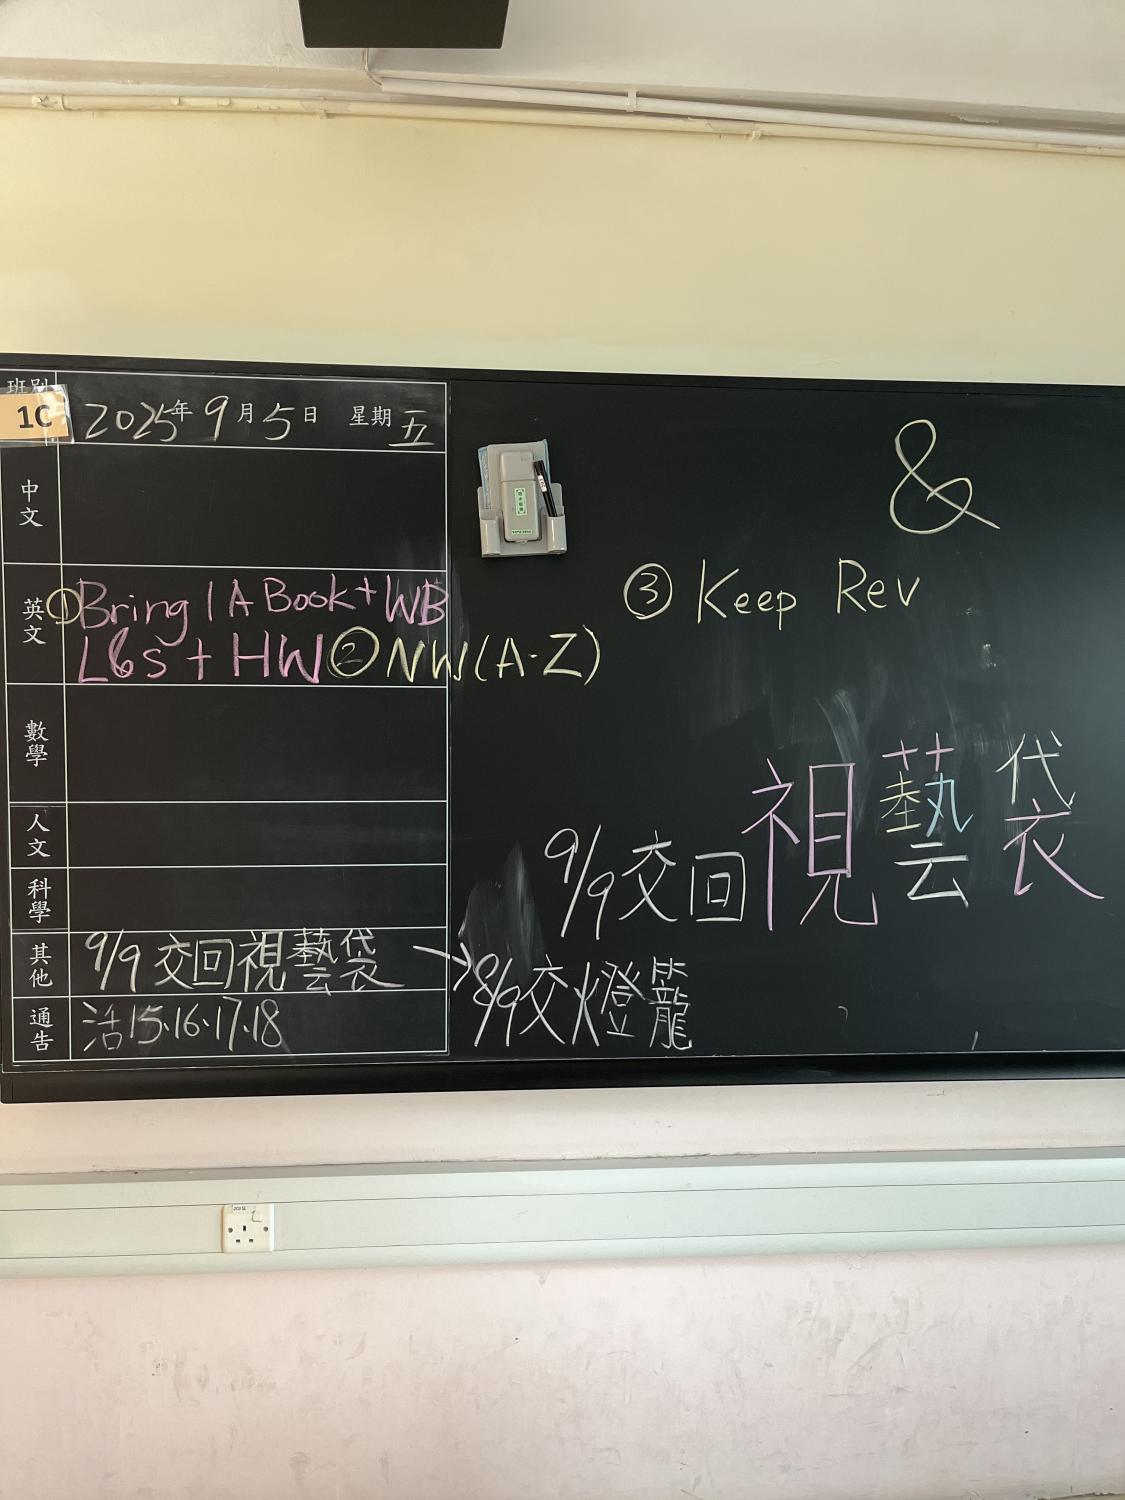 班別
1C
2025年9月5日 星期五
中文
英文 ①Bring 1A Book+WB
L6s + HW ②NW(A-Z)
&
③ Keep Rev
數學
人文
科學
其他 9/9交回視藝袋 →8/9交燈籠
通告 活15.16.17.18
9/9交回視藝袋